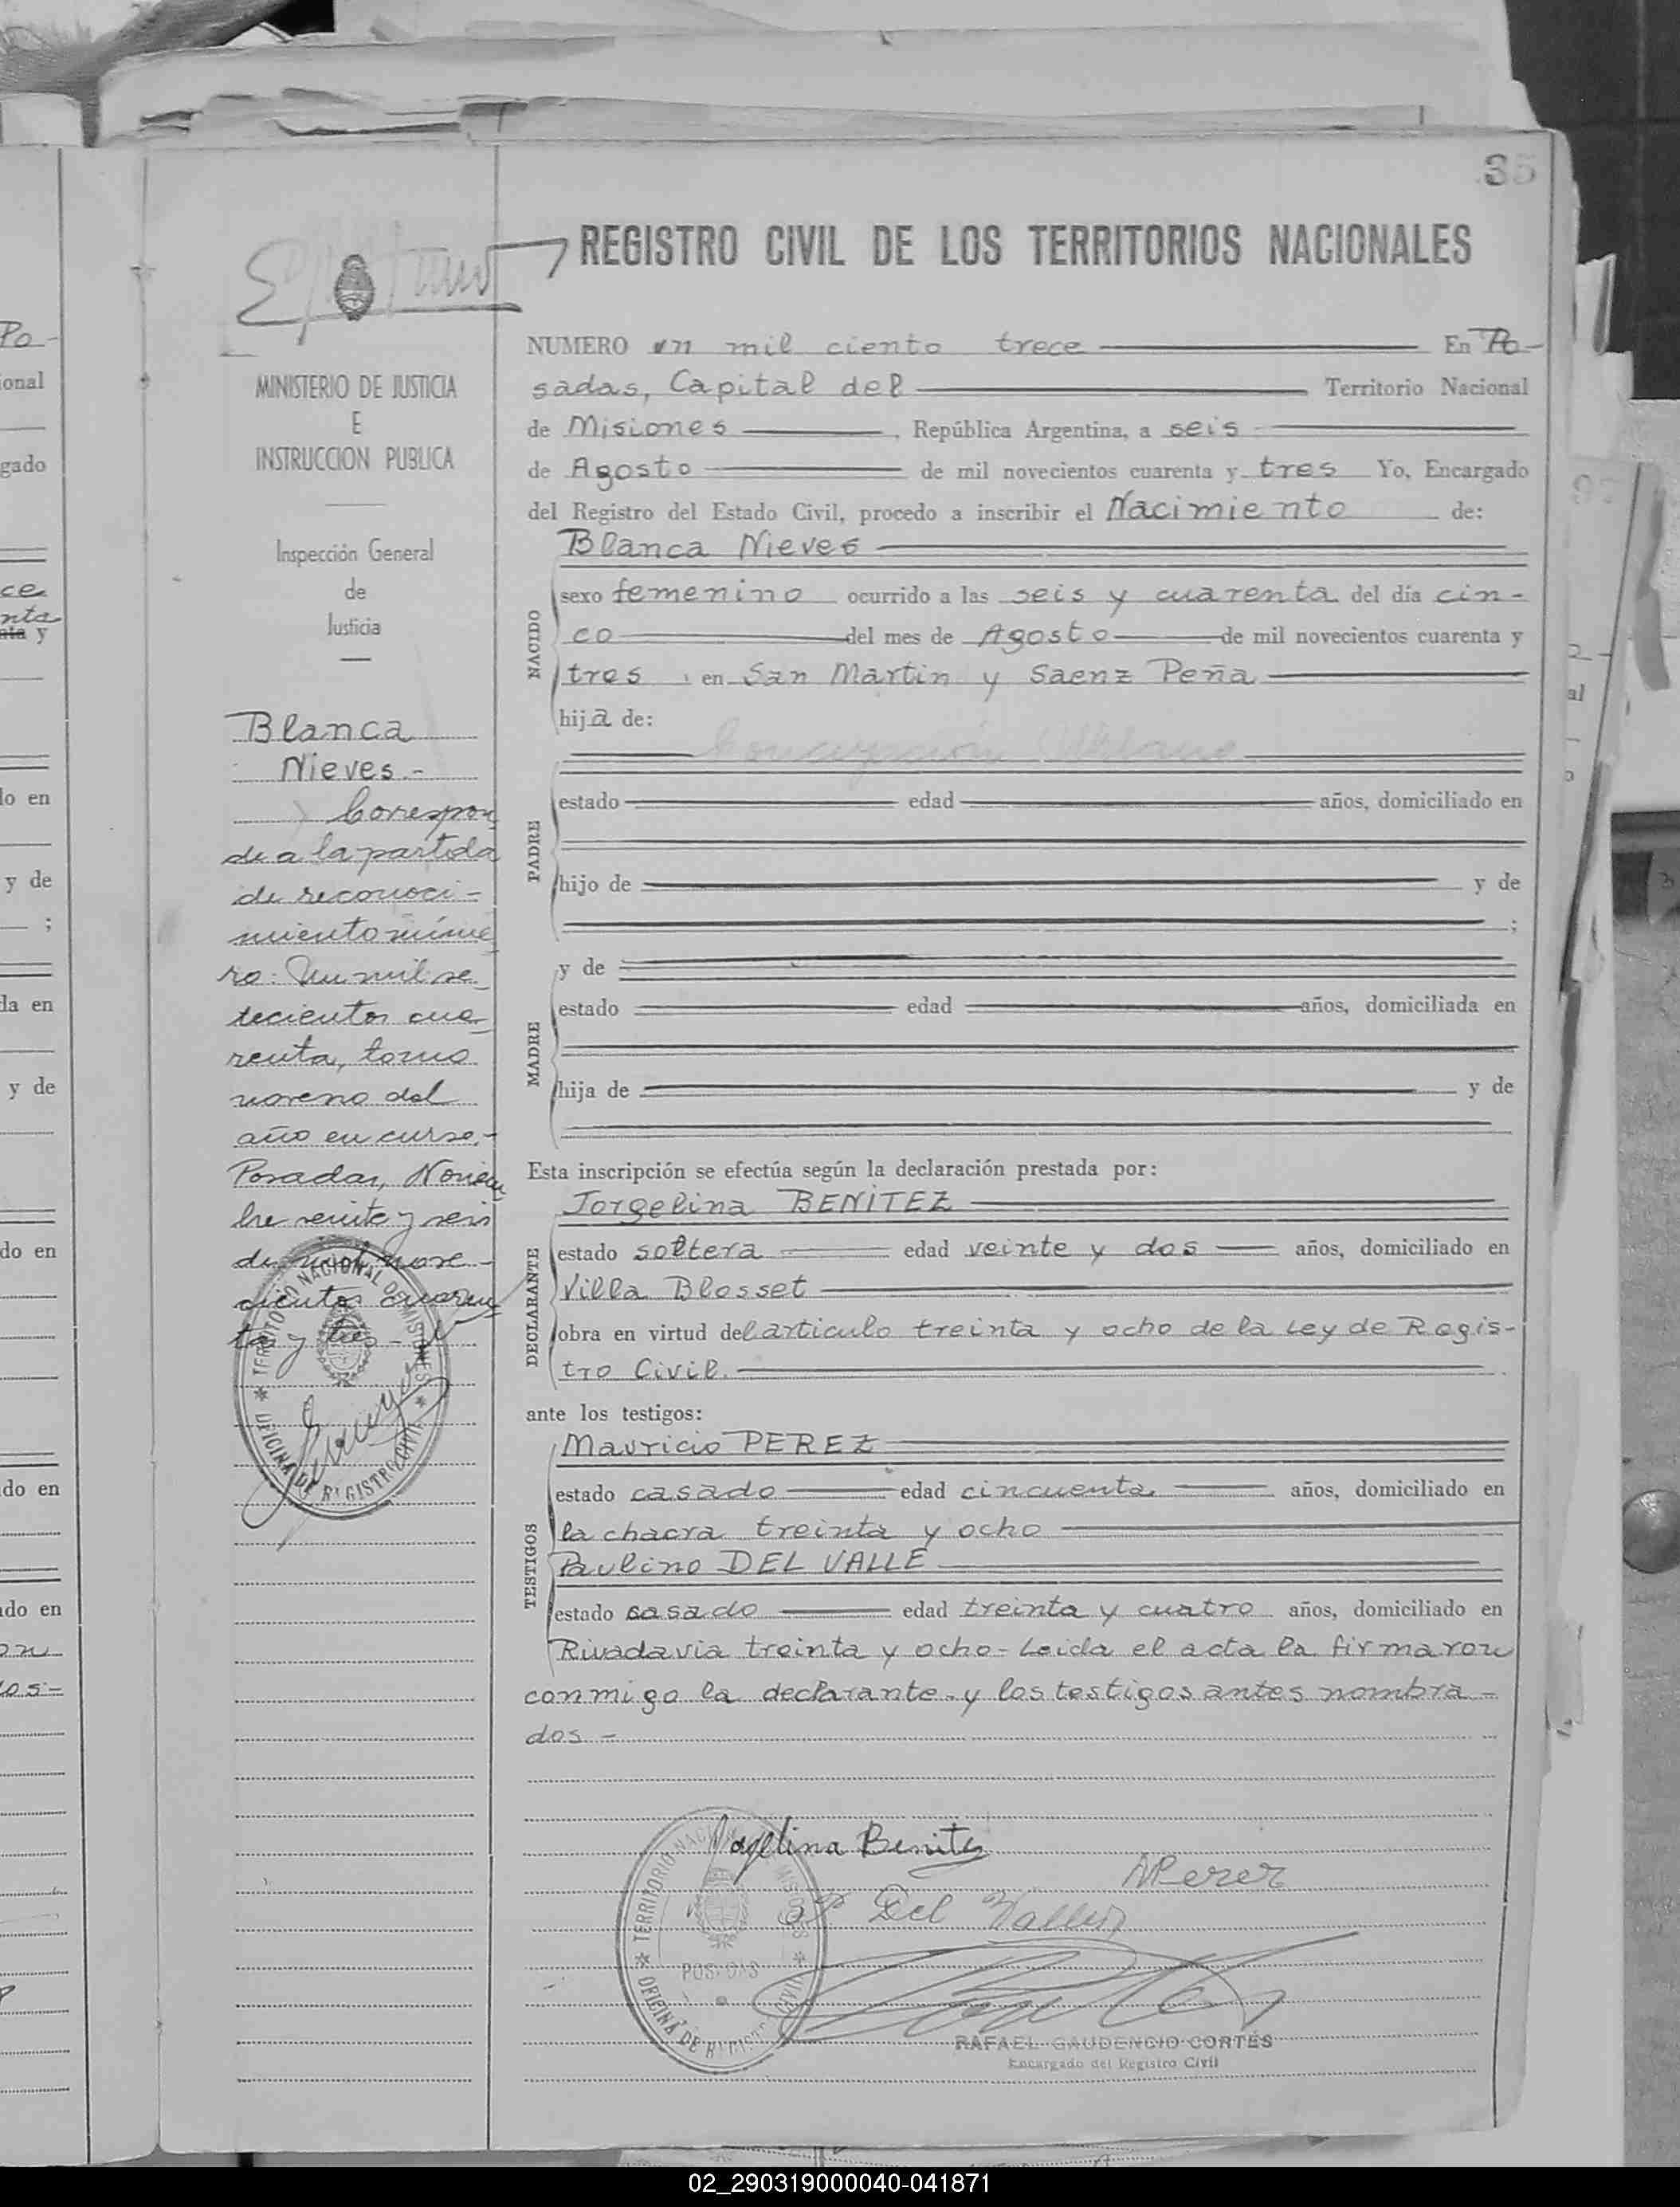 35
REGISTRO CIVIL DE LOS TERRITORIOS NACIONALES
MINISTERIO DE JUSTICIA
E
INSTRUCCION PUBLICA
Inspección General
de
Justicia
Blanca
Nieves.-
Correspon
de a la partida
de reconoci-
miento núme
ro: Un mil se
tecientos cua
renta, tomo
noveno del
año en curso.-
Posadas, Noviem
bre veinte y seis
de mil nove-
cientos cuaren
ta y tres.-
TERRITORIO NACIONAL DE MISIONES
OFICINA DE REGISTRO CIVIL
NUMERO un mil ciento trece En Po-
sadas, Capital del Territorio Nacional
de Misiones, República Argentina, a seis
de Agosto de mil novecientos cuarenta y tres Yo, Encargado
del Registro del Estado Civil, procedo a inscribir el Nacimiento de:
NACIDO
Blanca Nieves
sexo femenino ocurrido a las seis y cuarenta del día cin-
co del mes de Agosto de mil novecientos cuarenta y
tres, en San Martin y Saenz Peña
hija de:
PADRE
Concepción
estado edad años, domiciliado en
hijo de y de
;
MADRE
y de
estado edad años, domiciliada en
hija de y de
Esta inscripción se efectúa según la declaración prestada por:
DECLARANTE
Jorgelina BENITEZ
estado soltera edad veinte y dos años, domiciliado en
Villa Blosset
obra en virtud del articulo treinta y ocho de la Ley de Regis-
tro Civil.
ante los testigos:
TESTIGOS
Mauricio PEREZ
estado casado edad cincuenta años, domiciliado en
la chacra treinta y ocho
Paulino DEL VALLE
estado casado edad treinta y cuatro años, domiciliado en
Rivadavia treinta y ocho- Leida el acta la firmaron
conmigo la declarante y los testigos antes nombra-
dos-
Jorgelina Benitez
MPerez
P Del Valle
TERRITORIO NACIONAL DE MISIONES
POSADAS
OFICINA DE REGISTRO CIVIL
RAFAEL GAUDENCIO CORTÉS
Encargado del Registro Civil
Po-
ional
gado
ce
nta
y
do en
y de
;
da en
y de
do en
do en
do en
on
os-
02_290319000040-041871